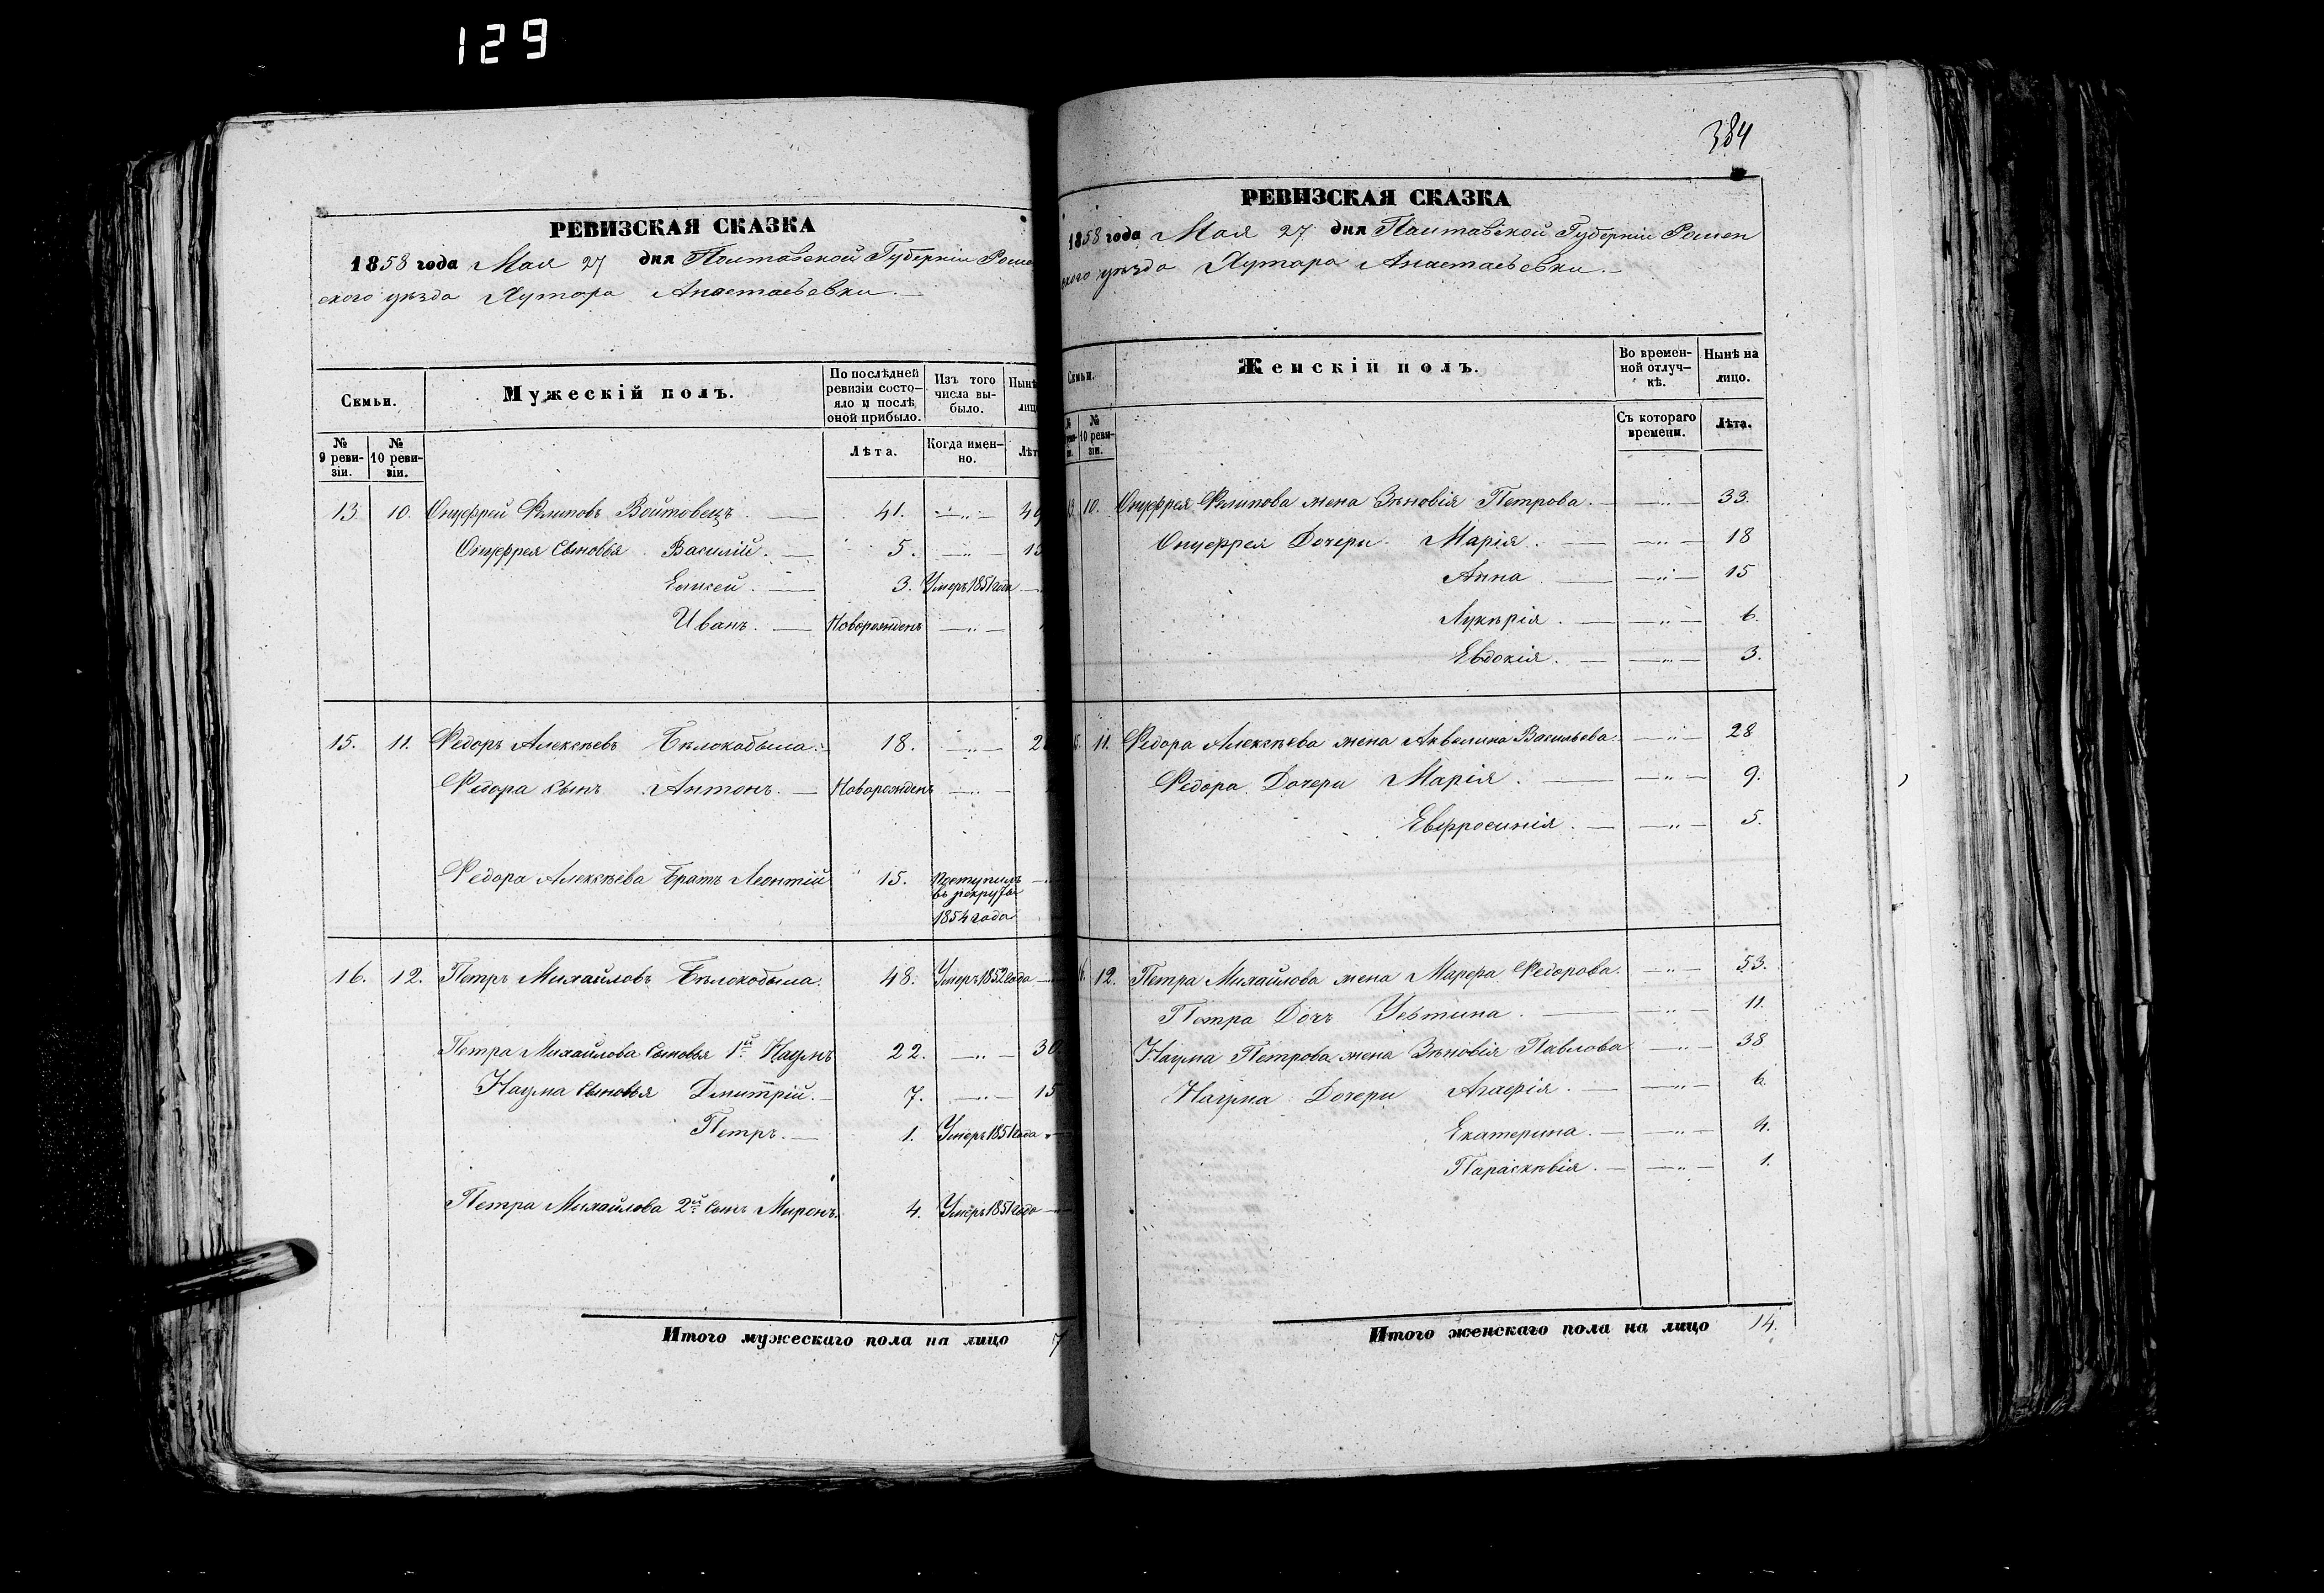 129
РЕВИЗСКАЯ СКАЗКА
1858 года Мая 27 дня Полтавской Губерніи Роме
ского уѣзда Хутора Анастасьевки.
Семьи.
Мужескій полъ.
По послѣдней ревизіи состояло и послѣ оной прибыло.
Изъ того числа выбыло.
№ 9 ревизіи.
№ 10 ревизіи.
Лѣта.
Когда именно.
13 10. Онуфрей Филиповъ Войтовецъ. 41. —„—
Онуфрея Сыновья Василій. 5. —„—
Елисей. 3. Умеръ 1851 года
Иванъ. Новорожденъ —„—
15. 11. Федоръ Алексѣевъ Бѣлокобыла. 18. —„—
Федора Сынъ Антонъ. Новорожденъ —„—
Федора Алексѣева Братъ Леонтій 15. Поступилъ
въ рекруты
1854 года
16. 12. Петръ Михайловъ Бѣлокобыла. 48. Умеръ 1852 года
Петра Михайлова Сыновья 1й Наумъ 22. —„— 30
Наума Сыновья Дмитрій. 7. —„— 15
Петръ. 1. Умеръ 1851 года
Петра Михайлова 2й Сынъ Миронъ. 4. Умеръ 1851 года
Итого мужескаго пола на лицо 7
384
РЕВИЗСКАЯ СКАЗКА
1858 года Мая 27 дня Полтавской Губерніи Ромен
ского уѣзда Хутора Анастасьевки.
Семьи.
Женскій полъ.
Во временной отлучкѣ.
Нынѣ на лицо.
№ 10 ревизіи.
Съ котораго времени.
Лѣта.
13. 10. Онуфрея Филипова жена Зѣновія Петрова. —„— 33.
Онуфрея Дочери Марія. —„— 18
Анна. —„— 15
Лукѣрія. —„— 6.
Евдокія. —„— 3.
11. Федора Алексѣева жена Аквелина Васильева. —„— 28
Федора Дочери Марія. —„— 9.
Евфросинія. —„— 5.
12. Петра Михайлова жена Марфа Федорова. —„— 53.
Петра Дочь Устина. —„— 11.
Наума Петрова жена Зѣновія Павлова —„— 38
Наума Дочери Агафія. —„— 6.
Екатерина. —„— 4.
Параскѣвія. —„— 1.
Итого женскаго пола на лицо 14.